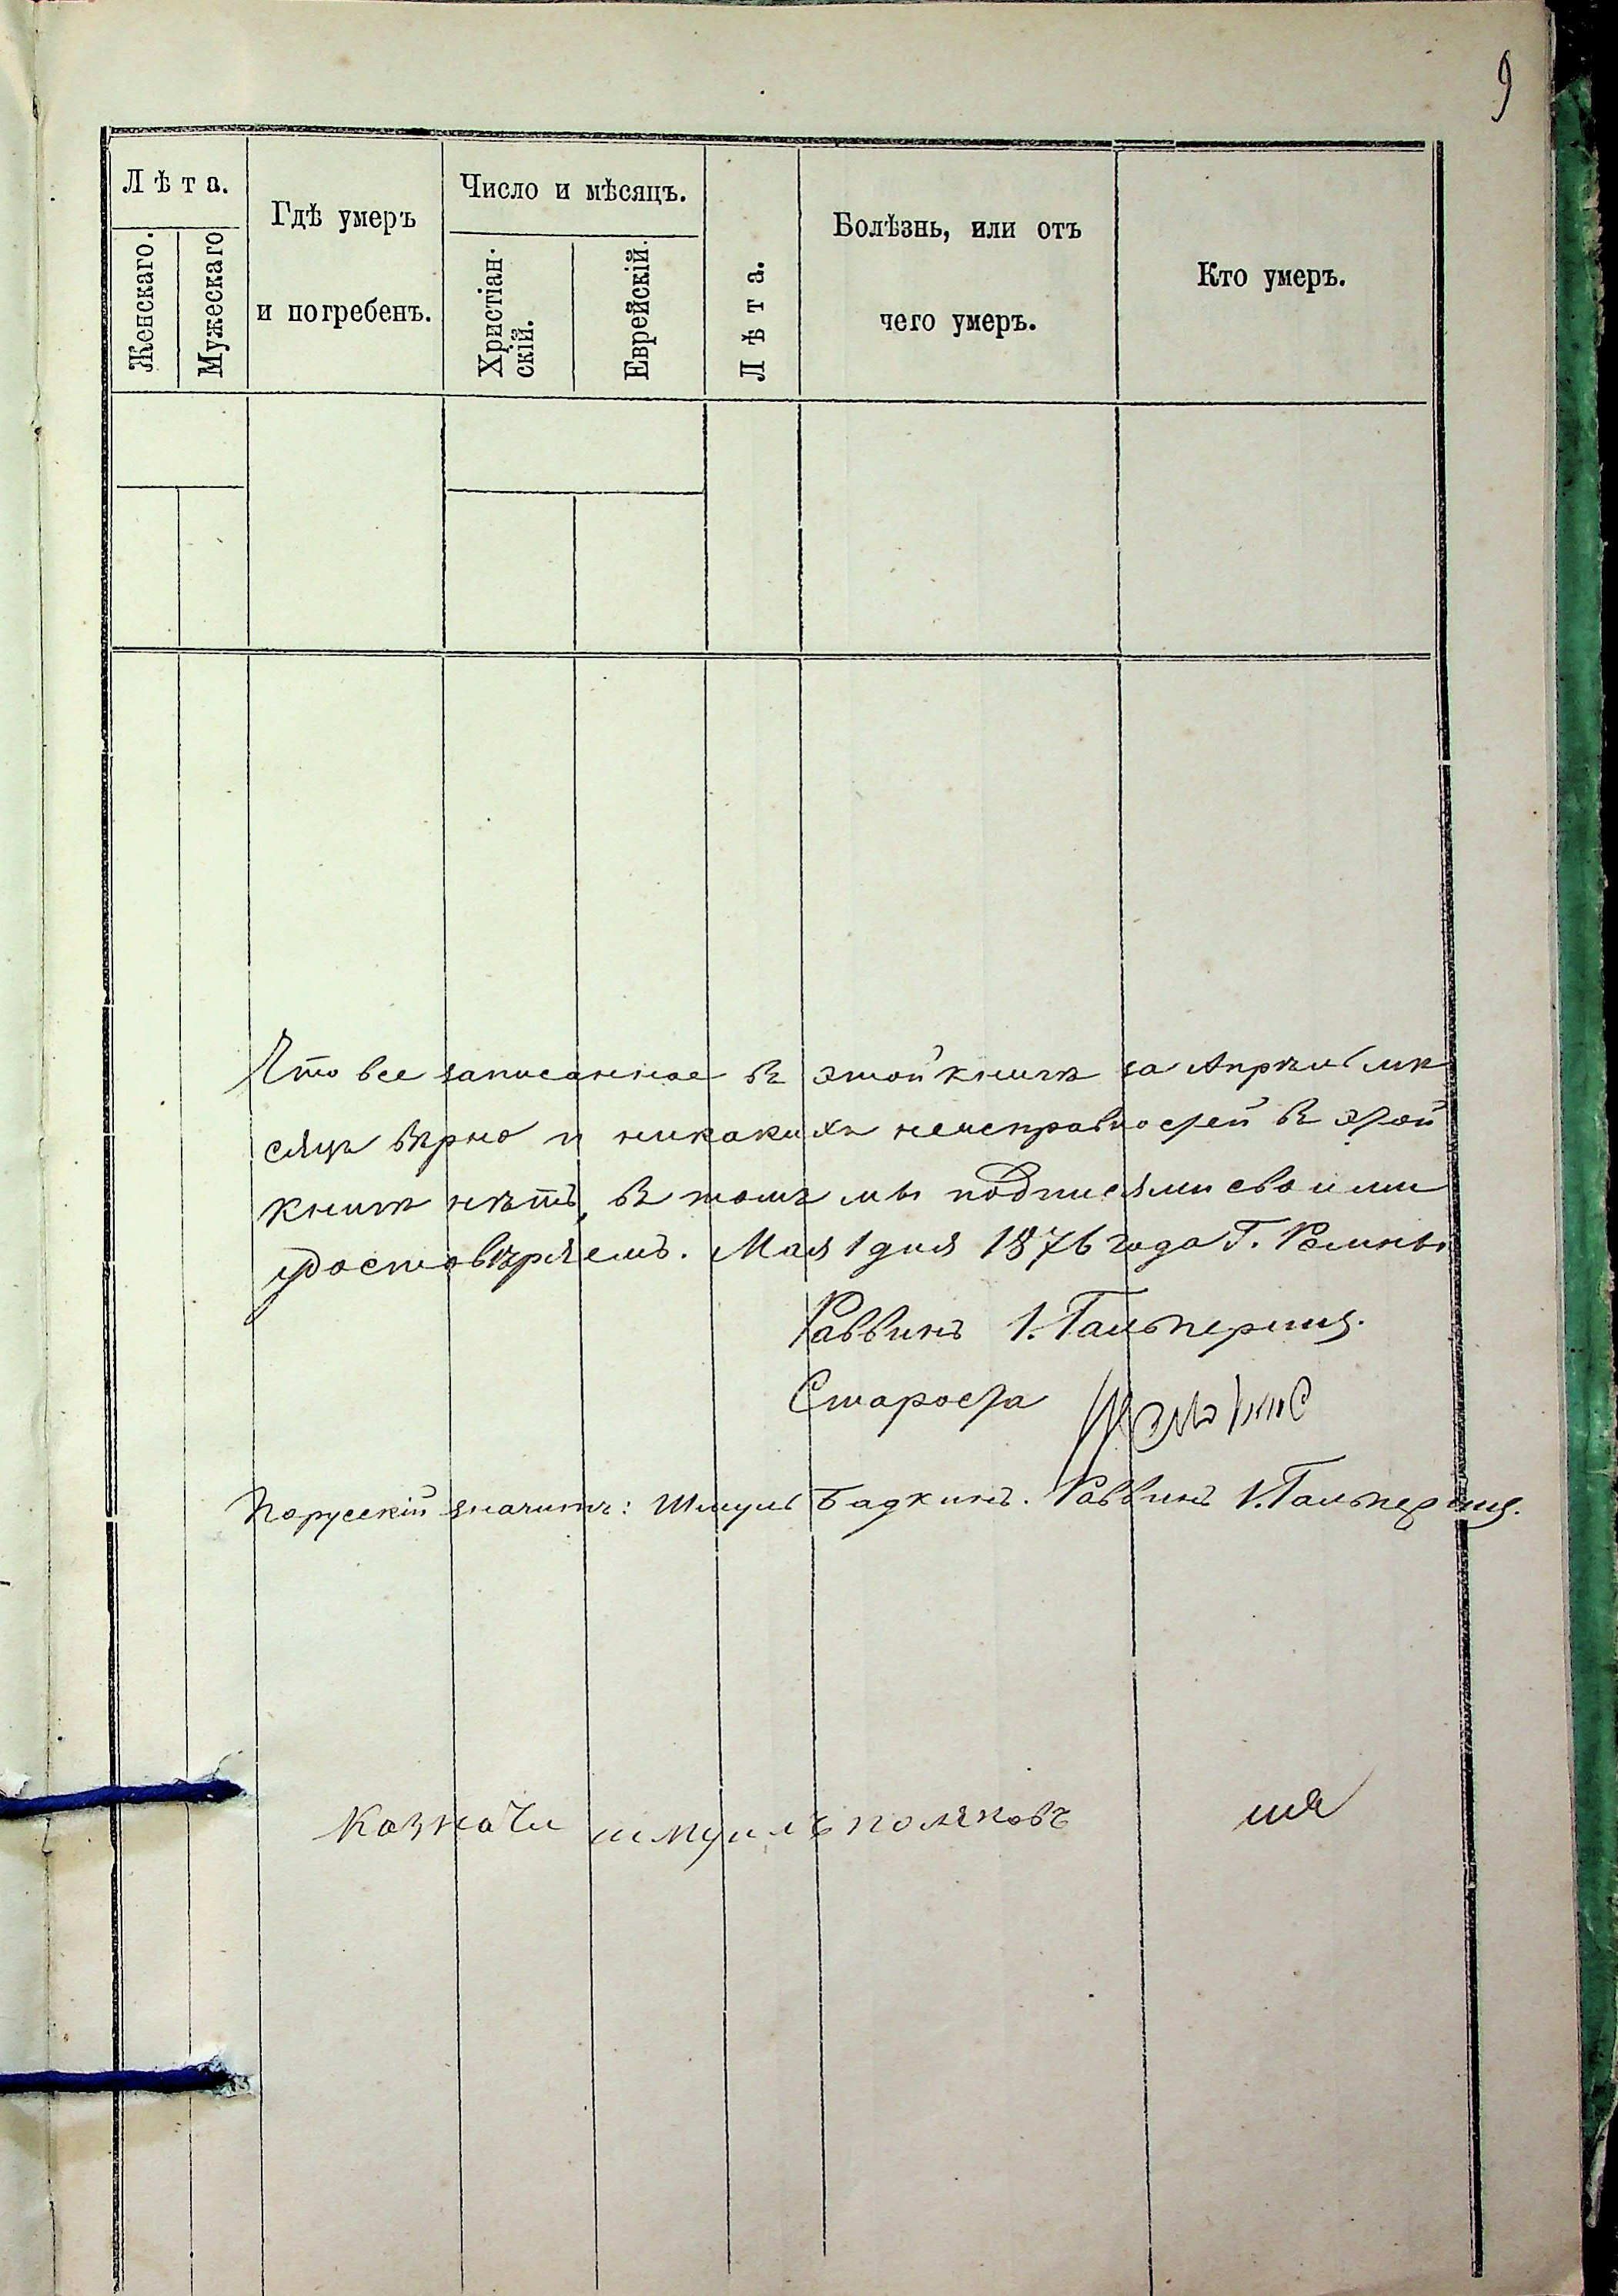 9
Лѣта.
Женскаго.
Мужескаго
Гдѣ умеръ
и погребенъ.
Число и мѣсяцъ.
Христіан-
скій.
Еврейскій.
Лѣта.
Болѣзнь, или отъ
чего умеръ.
Кто умеръ.
Что все записанное въ этой книгѣ за Апрѣль мѣ
сяцъ вѣрно и никакихъ неисправностей въ этой
книгѣ нѣтъ, въ томъ мы подписями своими
удостовѣряемъ. Мая 1 дня 1876 года Г. Ромны
Раввинъ І. Гальперинъ.
Староста
Порусскій значитъ: Шмуль Бадкинъ. Раввинъ І. Гальперинъ.
Казначи шмуилъ поляковъ